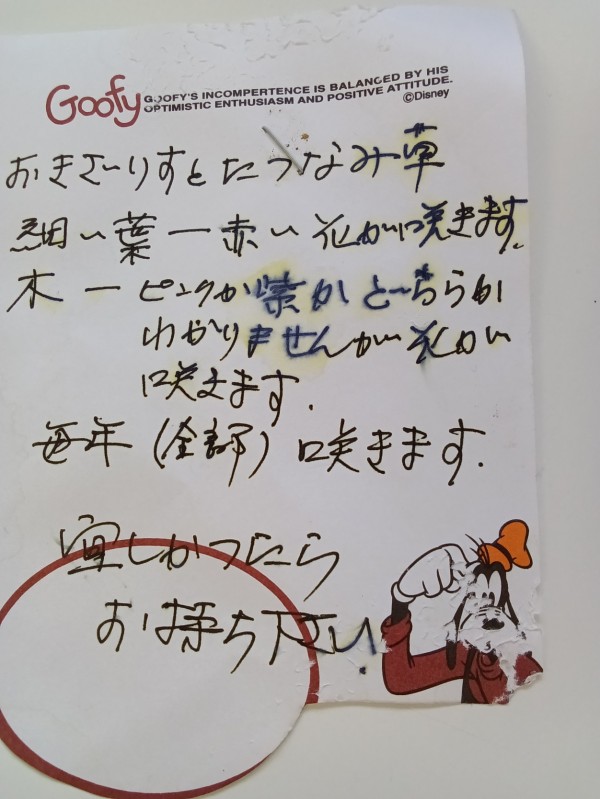 Goofy
GOOFY'S INCOMPERTENCE IS BALANCED BY HIS
OPTIMISTIC ENTHUSIASM AND POSITIVE ATTITUDE.
©Disney
おきざーりすとたつなみ草
細い葉ー赤い花が咲きます。
木ーピンクか紫かどちらか
わかりませんが花が
咲きます.
毎年(全部)咲きます.
宜しかったら
お持ち下さい